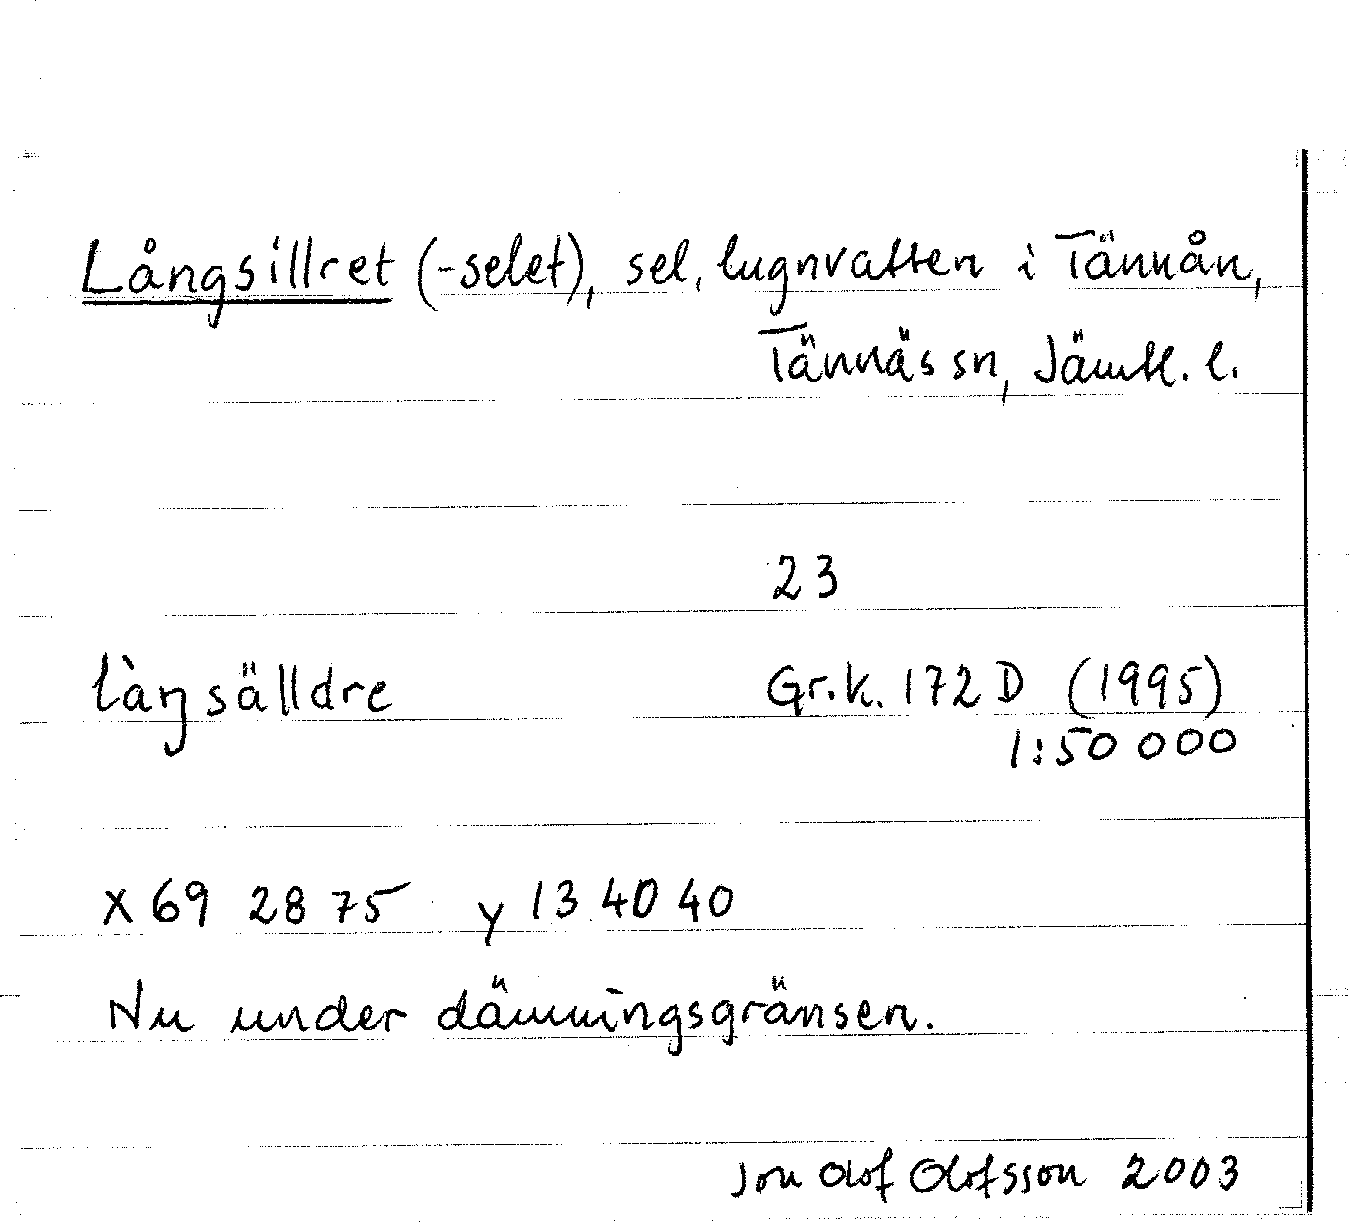 Långsillret (-selet), sel, lugnvatten i Tännån,
Tännäs sn, Jämtl. l.
23
làŋsälldre Gr.k. 172 D (1995)
1:50 000
x 69 28 75 y 13 40 40
Nu under dämningsgränsen.
Jon Olof Olofsson 2003